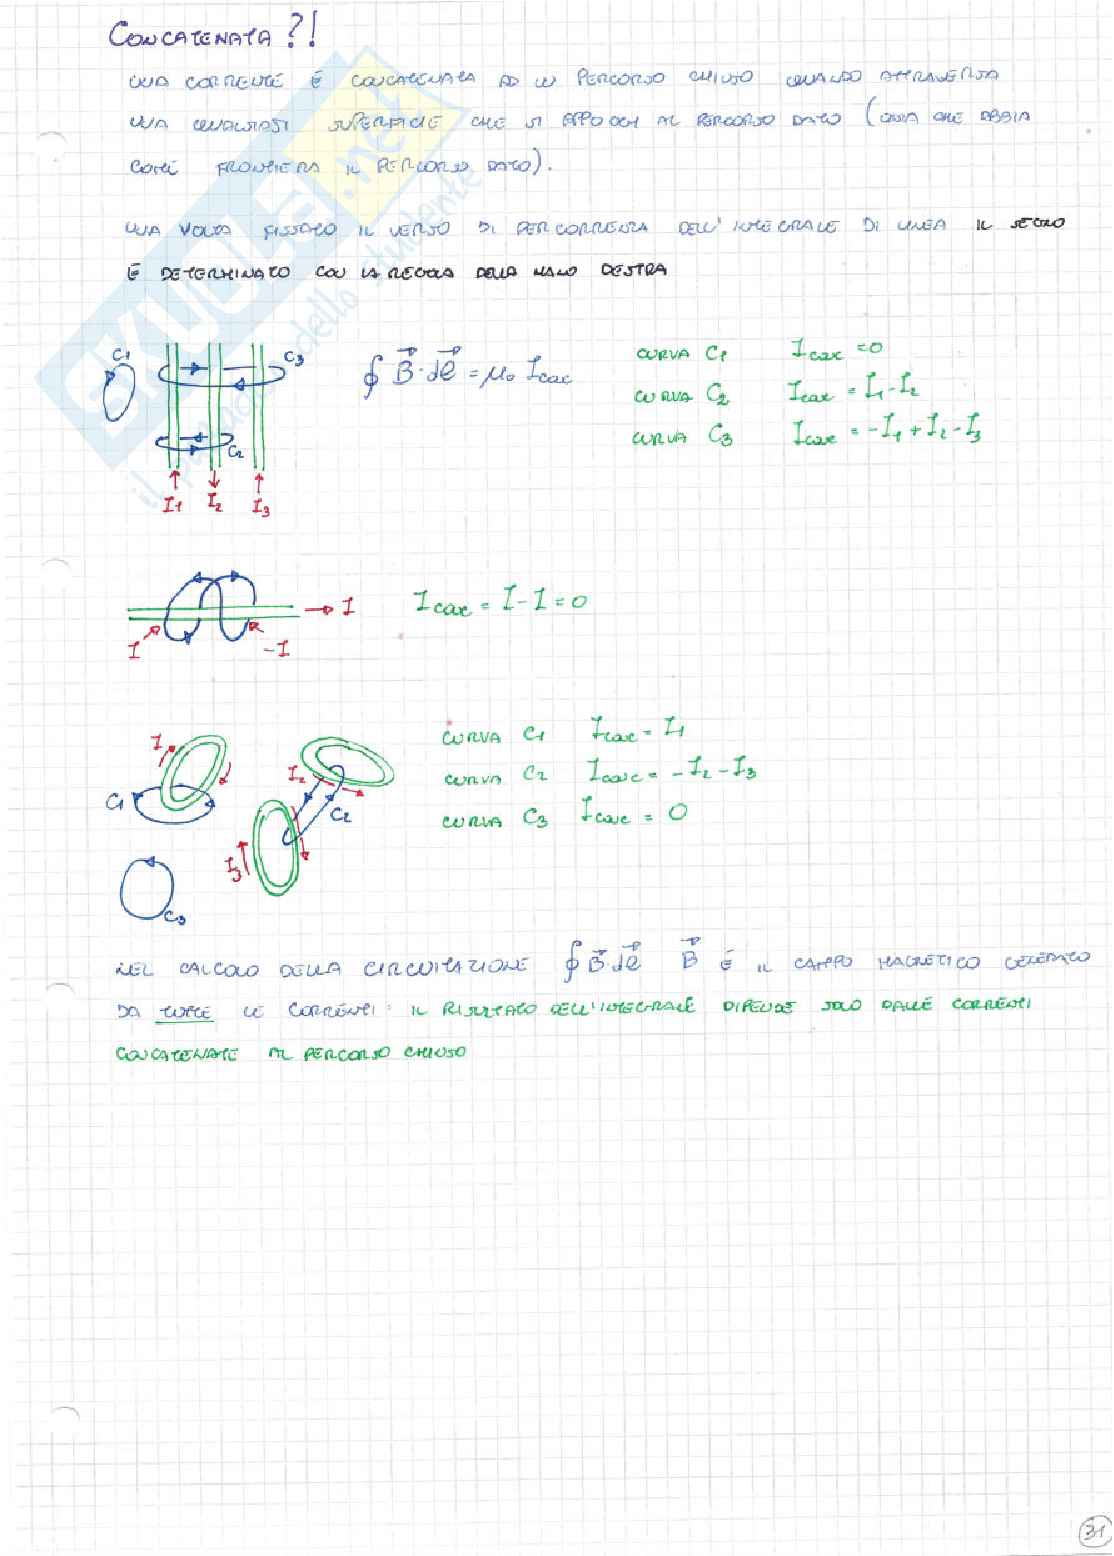 CONCATENATA?!
UNA CORRENTE È CONCATENATA AD UN PERCORSO CHIUSO QUANDO ATTRAVERSA
UNA QUALSIASI SUPERFICIE CHE SI APPOGGI AL PERCORSO DATO (OSSIA CHE ABBIA
COME FRONTIERA IL PERCORSO DATO).
UNA VOLTA FISSATO IL VERSO DI PERCORRENZA DELL'INTEGRALE DI LINEA IL SEGNO
È DETERMINATO CON LA REGOLA DELLA MANO DESTRA
C1 C3 C2
I1 I2 I3
∮ B⃗·dℓ⃗ = μ₀ Iconc
CURVA C1 Iconc = 0
CURVA C2 Iconc = I1 - I2
CURVA C3 Iconc = -I1 + I2 - I3
I I -I
Iconc = I - I = 0
I C1 I2 C2 I3 C3
CURVA C1 Iconc = I1
CURVA C2 Iconc = -I2 - I3
CURVA C3 Iconc = 0
NEL CALCOLO DELLA CIRCUITAZIONE ∮ B⃗·dℓ⃗ B⃗ È IL CAMPO MAGNETICO GENERATO
DA TUTTE LE CORRENTI: IL RISULTATO DELL'INTEGRALE DIPENDE SOLO DALLE CORRENTI
CONCATENATE AL PERCORSO CHIUSO
31
SKUOLA.net
il portale dello studente